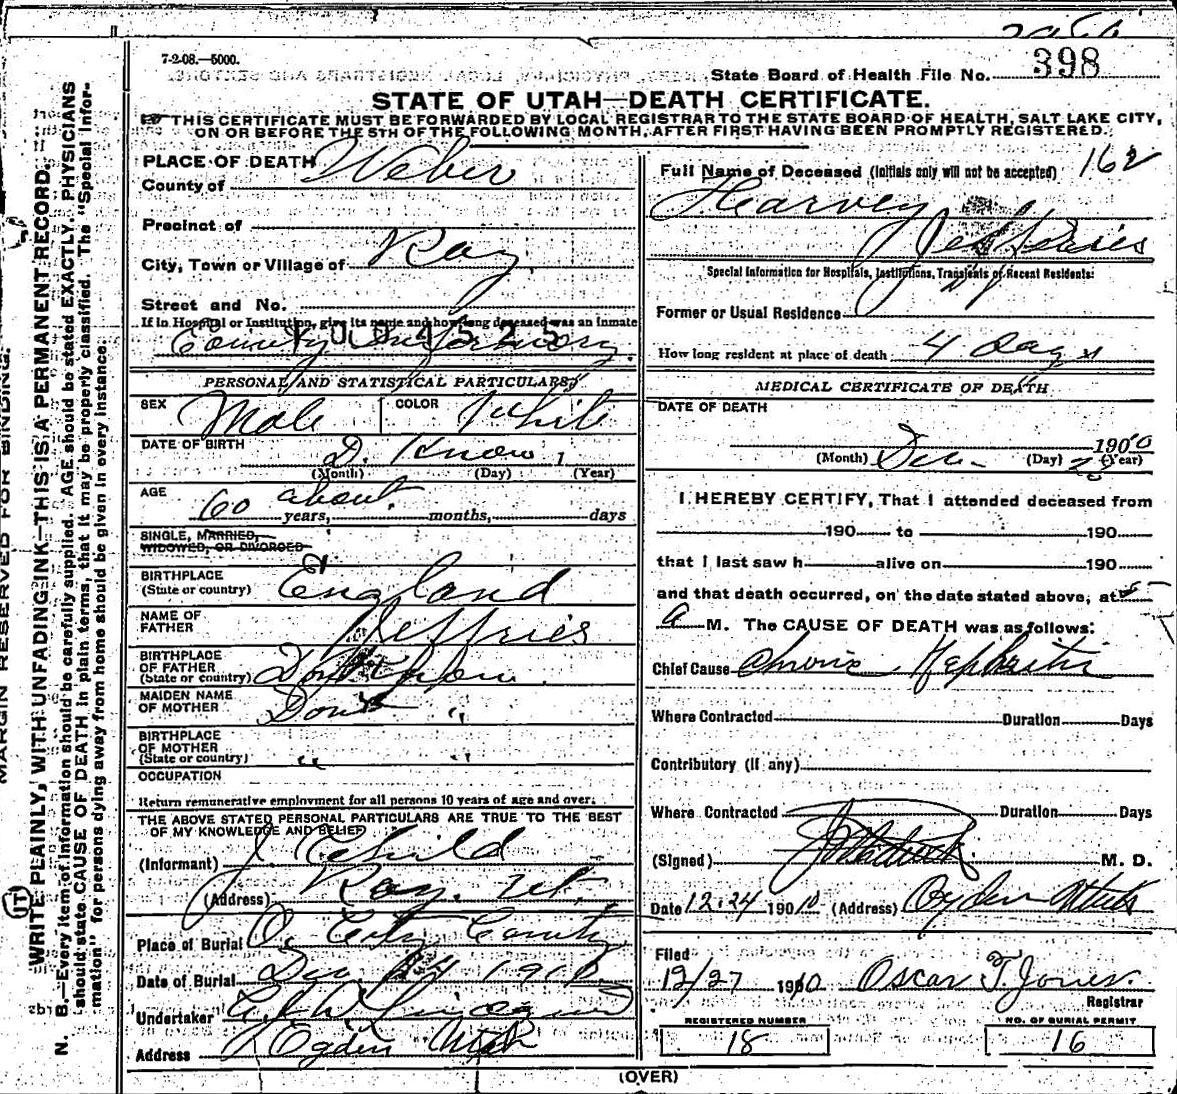 7-2-08.—5000.
State Board of Health File No. 398
STATE OF UTAH—DEATH CERTIFICATE.
THIS CERTIFICATE MUST BE FORWARDED BY LOCAL REGISTRAR TO THE STATE BOARD OF HEALTH, SALT LAKE CITY,
ON OR BEFORE THE 5TH OF THE FOLLOWING MONTH, AFTER FIRST HAVING BEEN PROMPTLY REGISTERED.
PLACE OF DEATH
County of Weber
Precinct of
City, Town or Village of Roy
Street and No.
If in Hospital or Institution, give its name and how long deceased was an inmate
County Infirmary.
PERSONAL AND STATISTICAL PARTICULARS
SEX Male COLOR White
DATE OF BIRTH D. Know
(Month) (Day) (Year)
AGE 60 about
years, months, days
SINGLE, MARRIED,
WIDOWED, OR DIVORCED
BIRTHPLACE
(State or country) England
NAME OF
FATHER Jeffries
BIRTHPLACE
OF FATHER
(State or country) Dont Know.
MAIDEN NAME
OF MOTHER Dont "
BIRTHPLACE
OF MOTHER
(State or country) " "
OCCUPATION
Return remunerative employment for all persons 10 years of age and over.
THE ABOVE STATED PERSONAL PARTICULARS ARE TRUE TO THE BEST
OF MY KNOWLEDGE AND BELIEF
(Informant)
(Address) Roy, Ut.
Place of Burial O. City
Date of Burial Dec 1910
Undertaker
Address Ogden Utah
162
Full Name of Deceased (Initials only will not be accepted)
Harvey
Jeffries
Special Information for Hospitals, Institutions, Transients or Recent Residents:
Former or Usual Residence
How long resident at place of death 4 days
MEDICAL CERTIFICATE OF DEATH
DATE OF DEATH
Dec 1910
(Month) (Day) (Year)
I HEREBY CERTIFY, That I attended deceased from
190 to 190
that I last saw h alive on 190
and that death occurred, on the date stated above, at 5
a M. The CAUSE OF DEATH was as follows:
Chief Cause Chronic Nephritis
Where Contracted Duration Days
Contributory (if any)
Where Contracted Duration Days
(Signed) M. D.
Date 12-24 1910 (Address) Ogden Utah
Filed
12/27 1910 Oscar T. Jones.
Registrar
REGISTERED NUMBER NO. OF BURIAL PERMIT
18 16
(OVER)
MARGIN RESERVED FOR BINDING.
WRITE PLAINLY, WITH UNFADING INK—THIS IS A PERMANENT RECORD.
N. B.—Every item of information should be carefully supplied. AGE should be stated EXACTLY. PHYSICIANS
should state CAUSE OF DEATH in plain terms, that it may be properly classified. The "Special Infor-
mation" for persons dying away from home should be given in every instance.